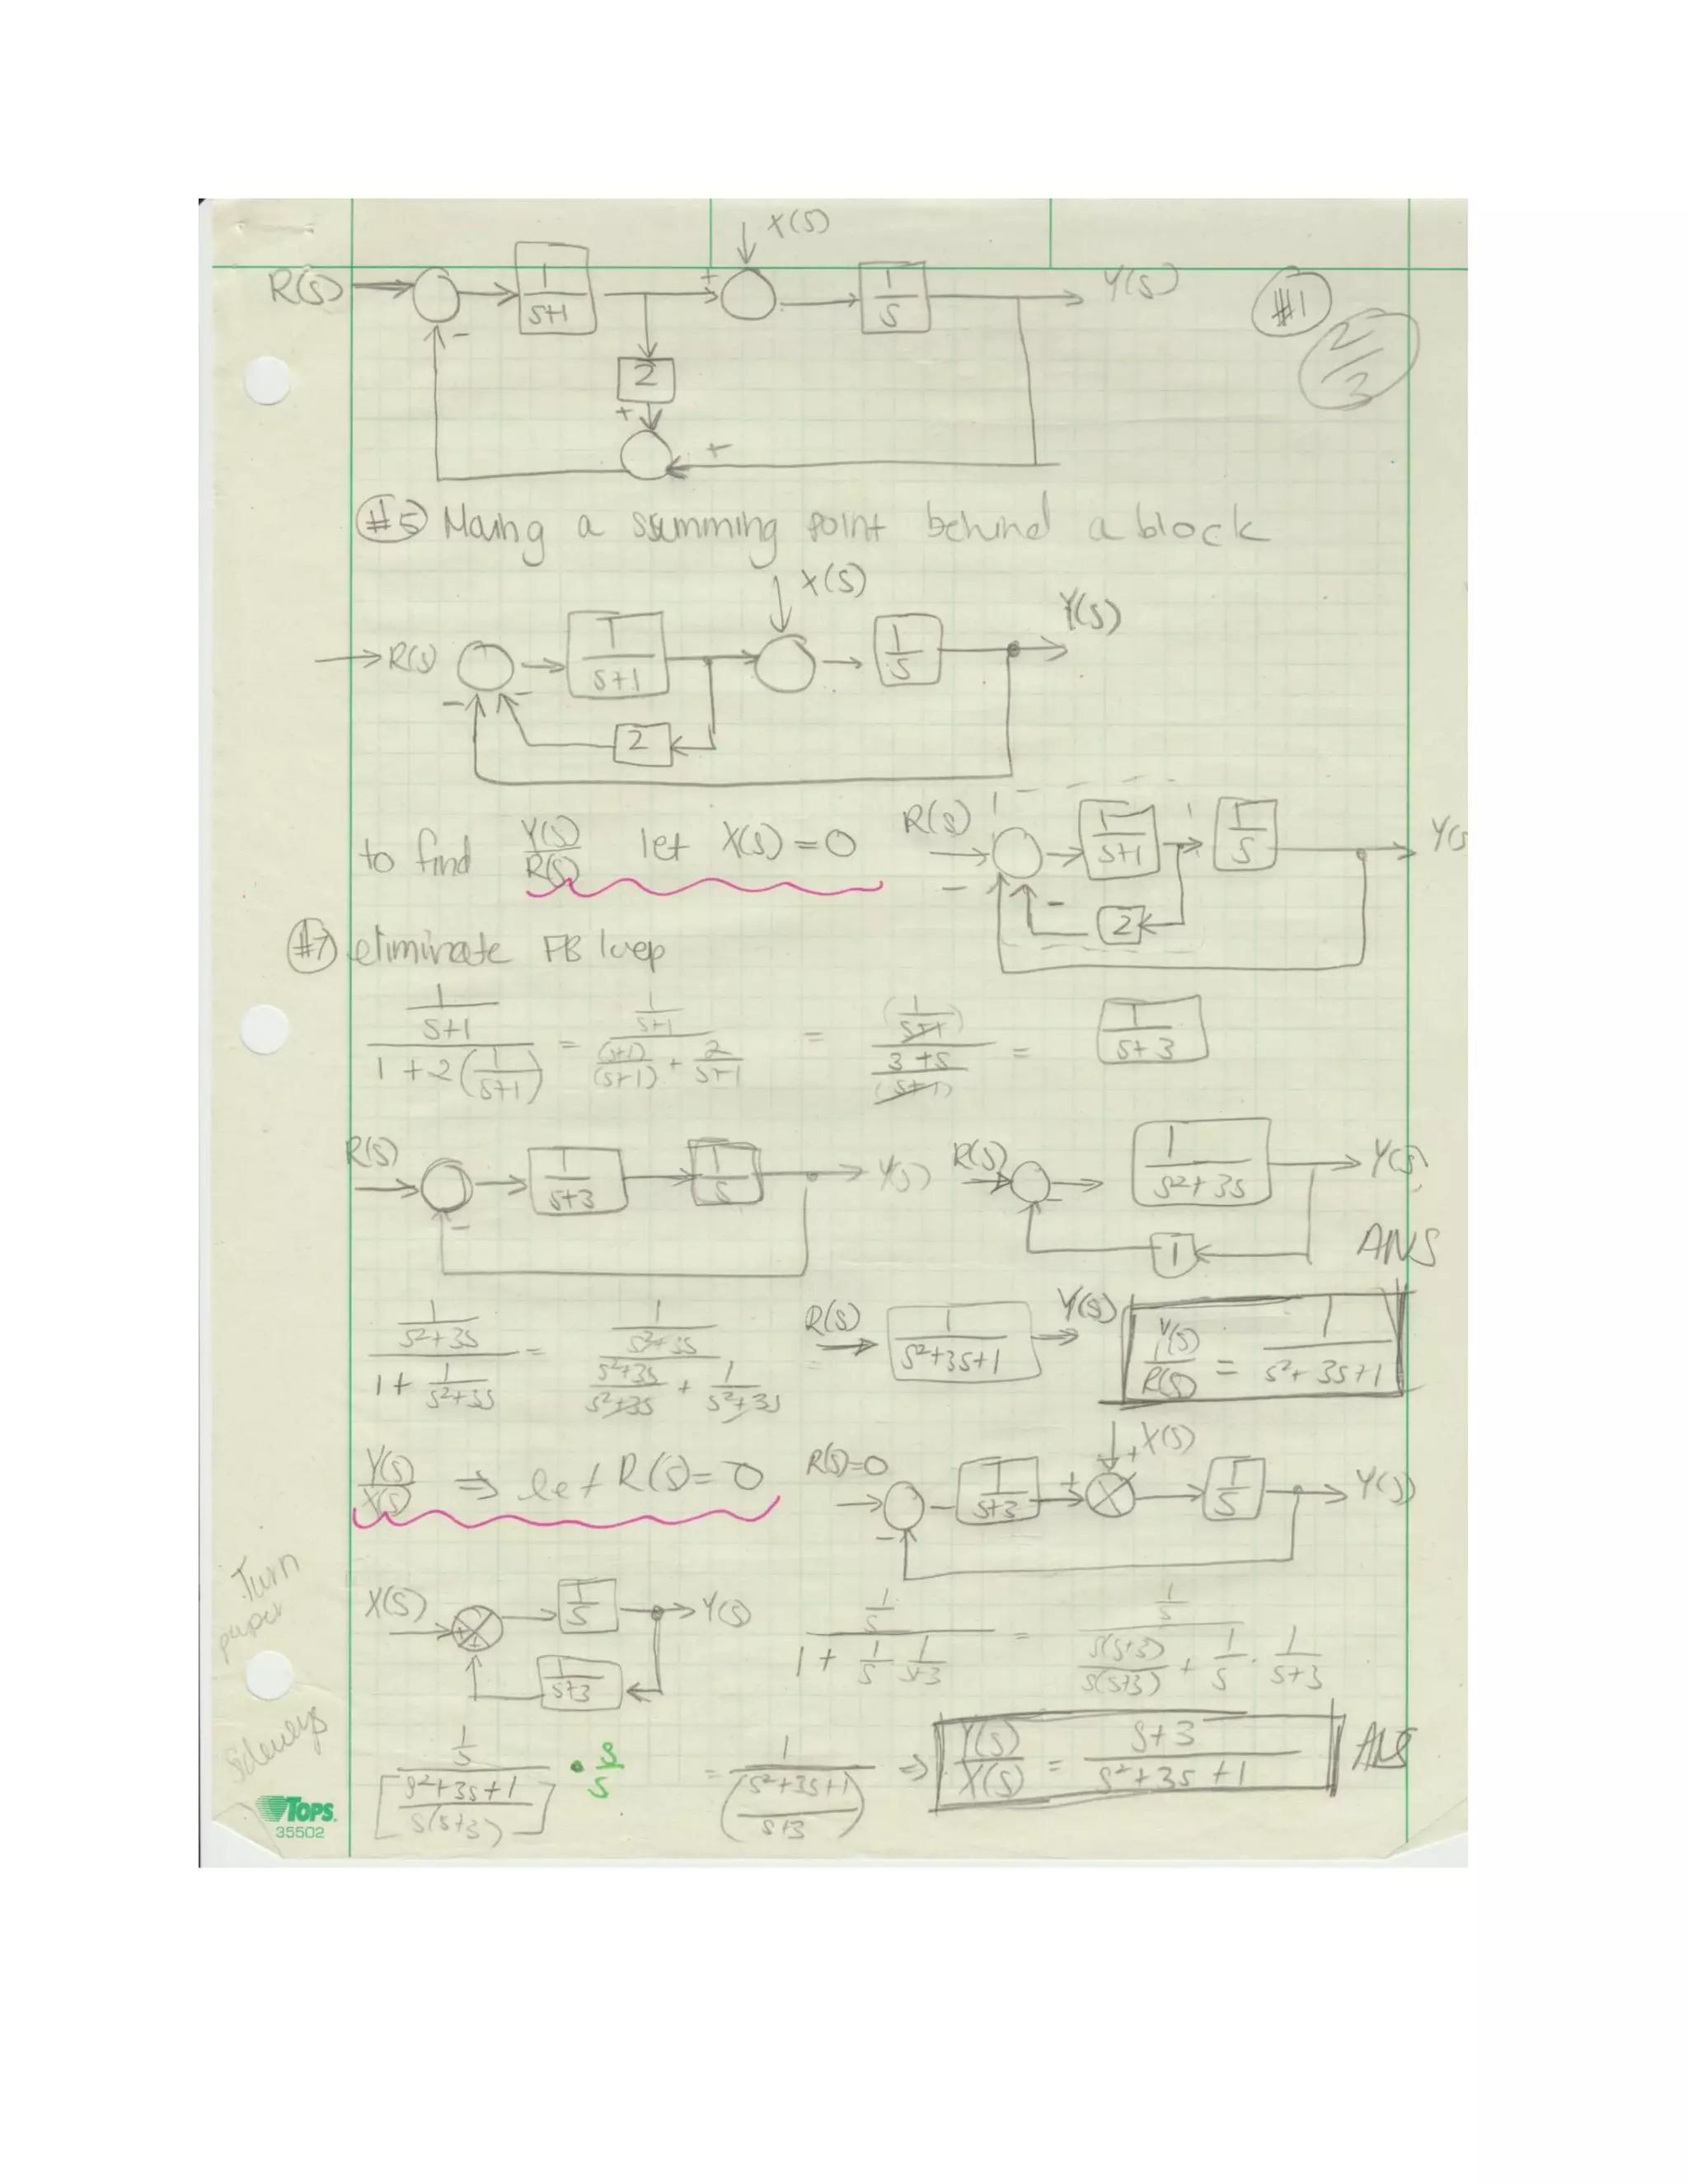 X(S)
R(s) 1/(s+1) + 1/s Y(s) #1
- 2/3
2
+
+
#5 Maing a summing point behind a block
X(S)
Y(S)
R(s) 1/(s+1) 1/s
- -
2
to find Y(s)/R(s) let X(s) = 0 R(s) 1/(s+1) 1/s Y(s
- - 2
#7 eliminate FB loop
(1/(s+1))/(1+2(1/(s+1))) = (1/(s+1))/((s+1)/(s+1) + 2/(s+1)) = (1/(s+1))/((3+s)/(s+1)) = 1/(s+3)
R(s) 1/(s+3) 1/s Y(s) R(s) 1/(s²+3s) Y(s)
- - 1 ANS
(1/(s²+3s))/(1+1/(s²+3s)) = (1/(s²+3s))/((s²+3s)/(s²+3s) + 1/(s²+3s)) = R(s) 1/(s²+3s+1) Y(s) Y(s)/R(s) = 1/(s²+3s+1)
+X(s)
Y(s)/X(s) ⇒ let R(s) = 0 R(s)=0 1/(s+3) + 1/s Y(s)
-
Turn paper sideways
X(s) + + 1/s Y(s) (1/s)/(1+1/s 1/(s+3)) = (1/s)/(s(s+3)/s(s+3) + 1/s · 1/(s+3))
1/(s+3)
(1/s)/[(s²+3s+1)/s(s+3)] · s/s = 1/((s²+3s+1)/(s+3)) ⇒ Y(s)/X(s) = (s+3)/(s²+3s+1) ANS
TOPS.
35502